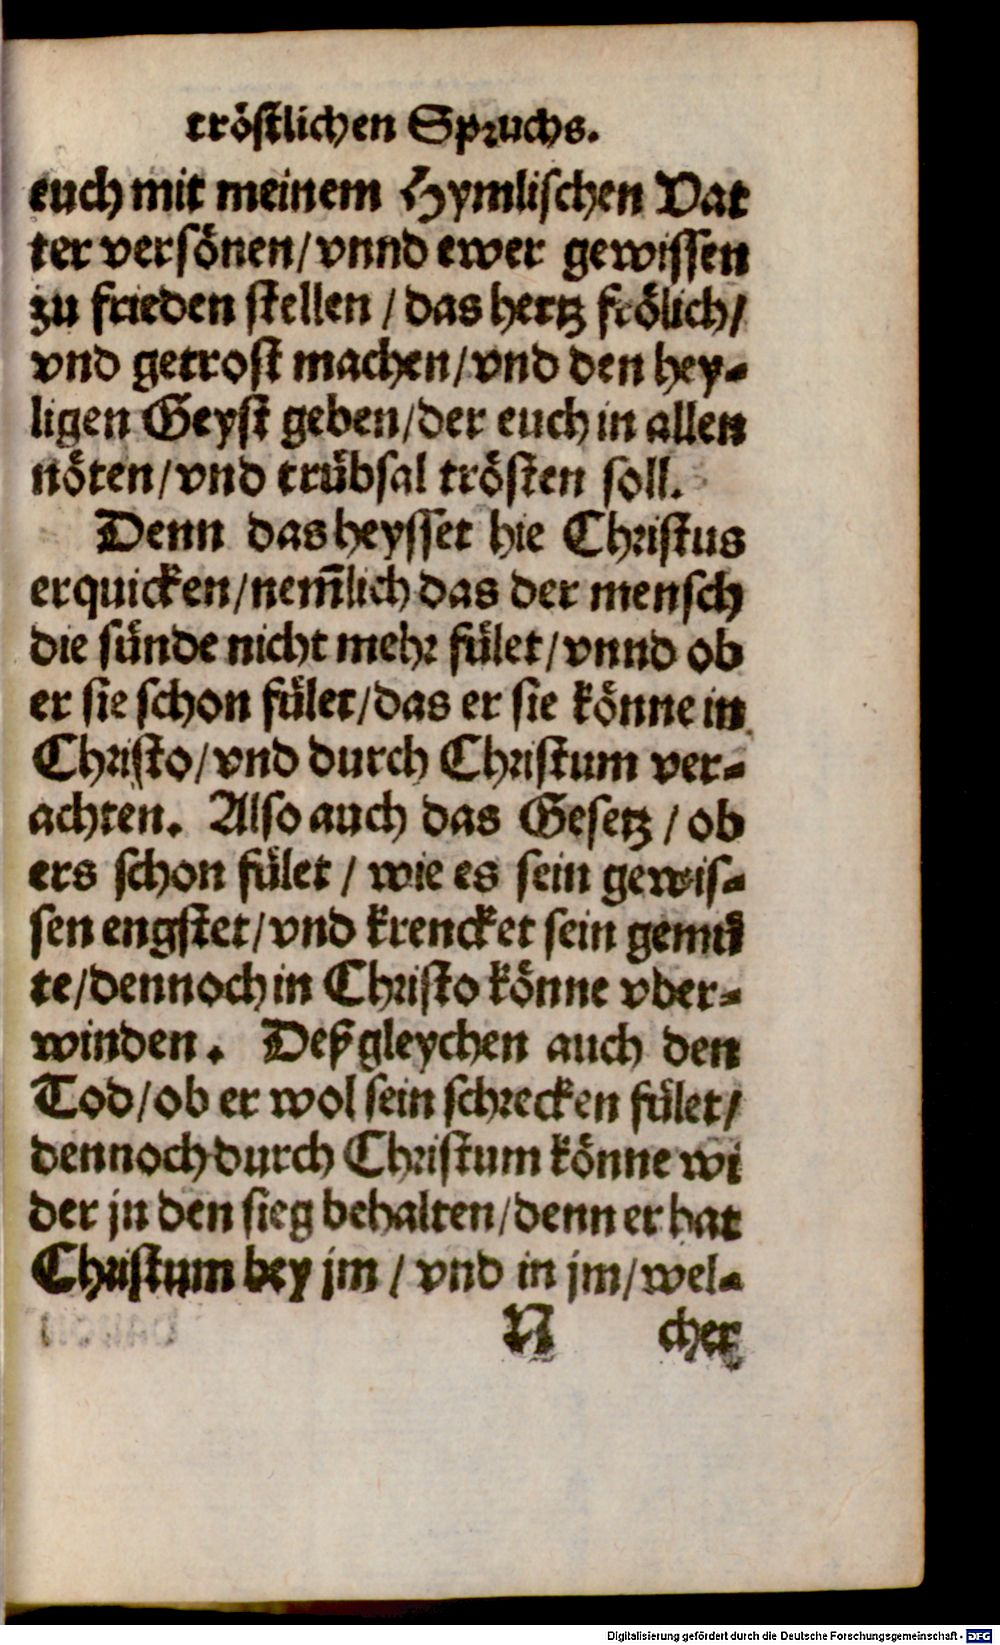 tröstlichen Spruchs.
euch mit meinem Hymlischen Vat
ter versönen/vnnd ewer gewissen
zu frieden stellen / das hertz frölich/
vnd getrost machen/vnd den hey-
ligen Geyst geben/der euch in allen
nöten/vnd trübsal trösten soll.
Denn das heysset hie Christus
erquicken/nem̃lich das der mensch
die sünde nicht mehr fület/vnnd ob
er sie schon fület/das er sie könne in
Christo/vnd durch Christum ver-
achten. Also auch das Gesetz / ob
ers schon fület / wie es sein gewis-
sen engstet/vnd krencket sein gemü
te/dennoch in Christo könne vber-
winden. Deßgleychen auch den
Tod/ob er wol sein schrecken fület/
dennoch durch Christum könne wi
der jn den sieg behalten/denn er hat
Christum bey jm / vnd in jm/wel-
N cher
Digitalisierung gefördert durch die Deutsche Forschungsgemeinschaft - DFG